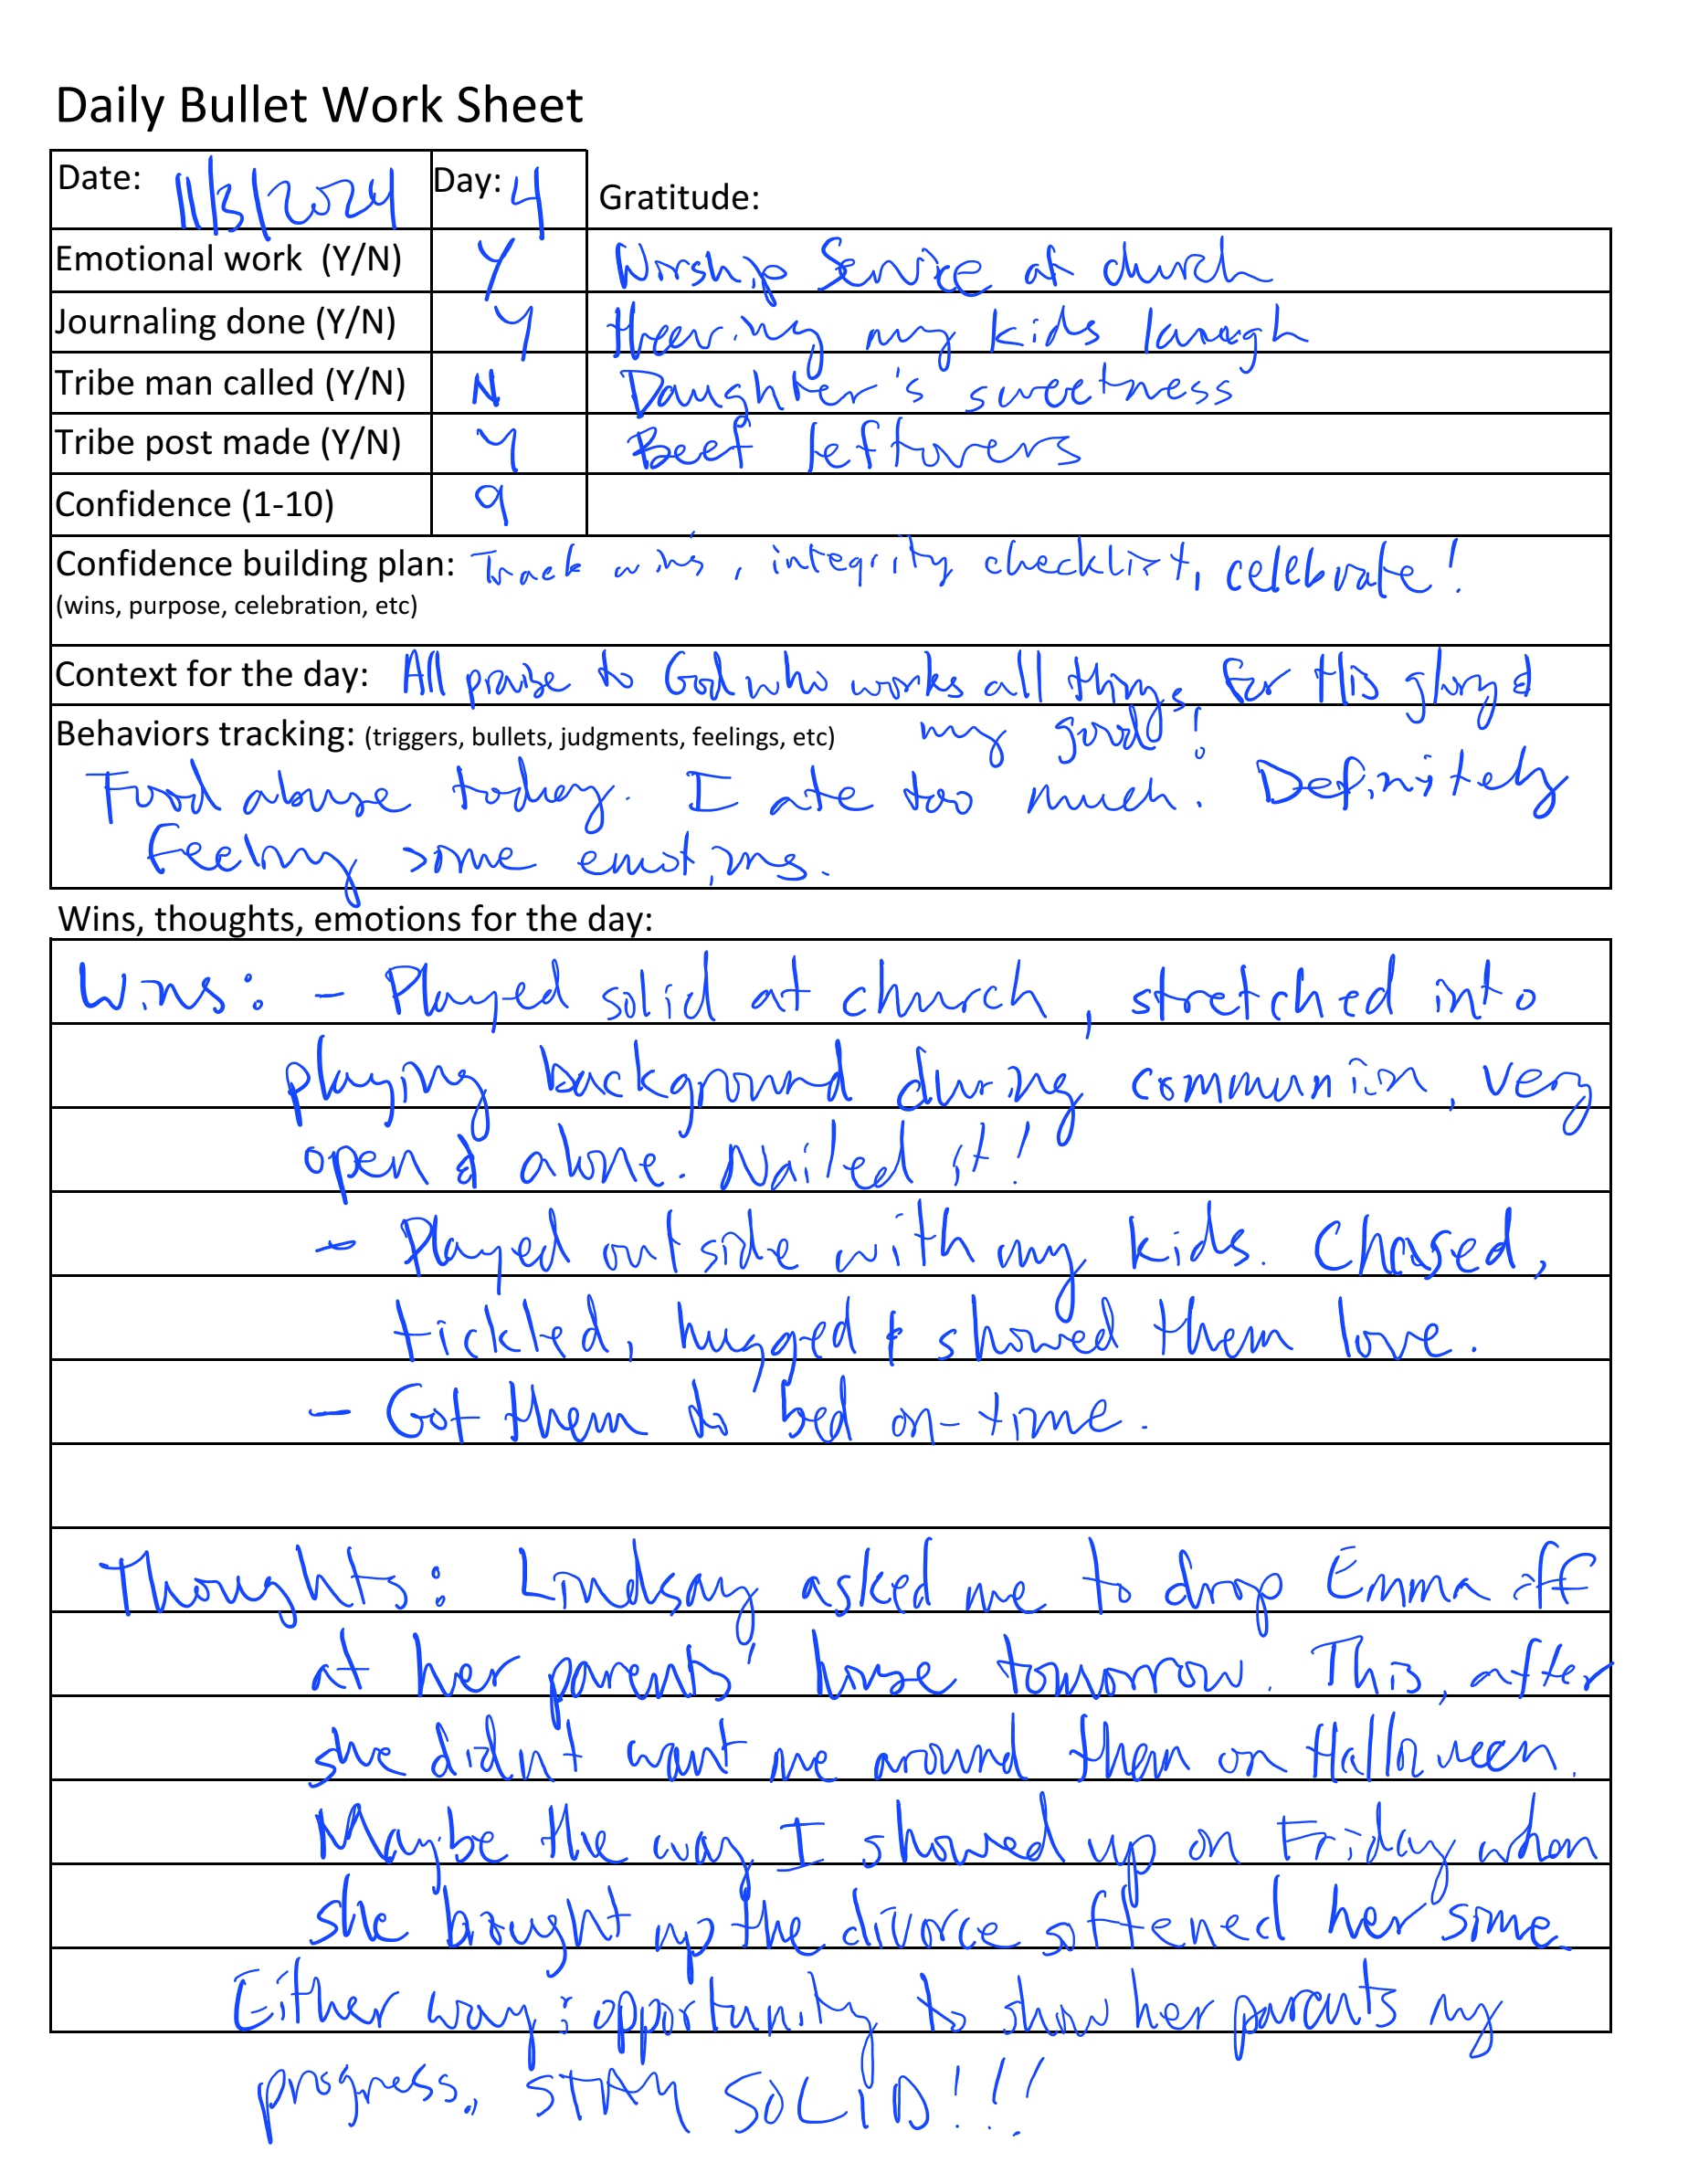 Daily Bullet Work Sheet
Date: 11/3/2024 Day: 4 Gratitude:
Emotional work (Y/N) Y Worship Service at church
Journaling done (Y/N) Y Hearing my kids laugh
Tribe man called (Y/N) N Daughter's sweetness
Tribe post made (Y/N) Y Beef leftovers
Confidence (1-10) 9
Confidence building plan: Track wins, integrity checklist, celebrate!
(wins, purpose, celebration, etc)
Context for the day: All praise to God who works all things for His glory &
my good!
Behaviors tracking: (triggers, bullets, judgments, feelings, etc)
Food abuse today. I ate too much. Definitely
feeling some emotions.
Wins, thoughts, emotions for the day:
Wins: - Played solid at church, stretched into
playing background during communion, very
open & alone. Nailed it!
- Played outside with my kids. Chased,
tickled, hugged & showed them love.
- Got them to bed on-time.
Thoughts: Lindsay asked me to drop Emma off
at her parents' house tomorrow. This, after
she didn't want me around them on Halloween.
Maybe the way I showed up on Friday when
she bought up the divorce softened her some.
Either way: opportunity to show her parents my
progress. STAY SOLID!!!